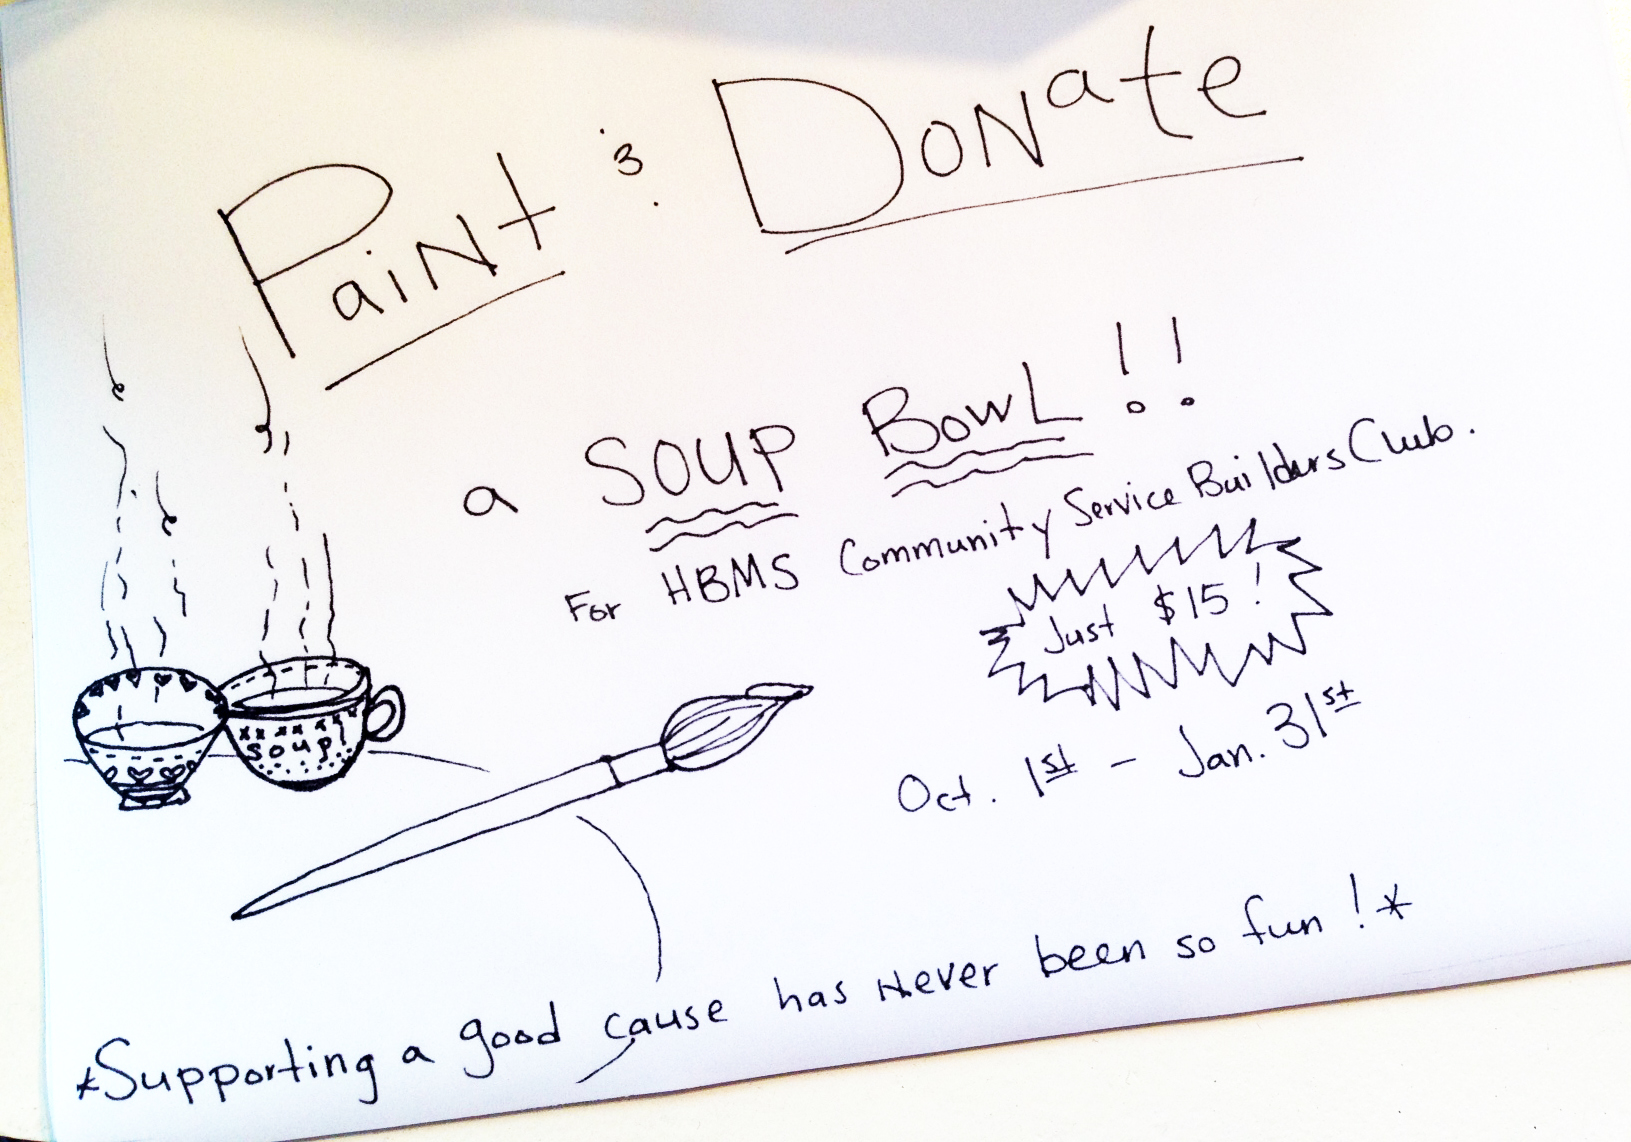 Paint & Donate
a SOUP BOWL!!
For HBMS Community Service Builders Club.
Just $15!
Oct. 1st - Jan. 31st
soup!
*Supporting a good cause has never been so fun!*